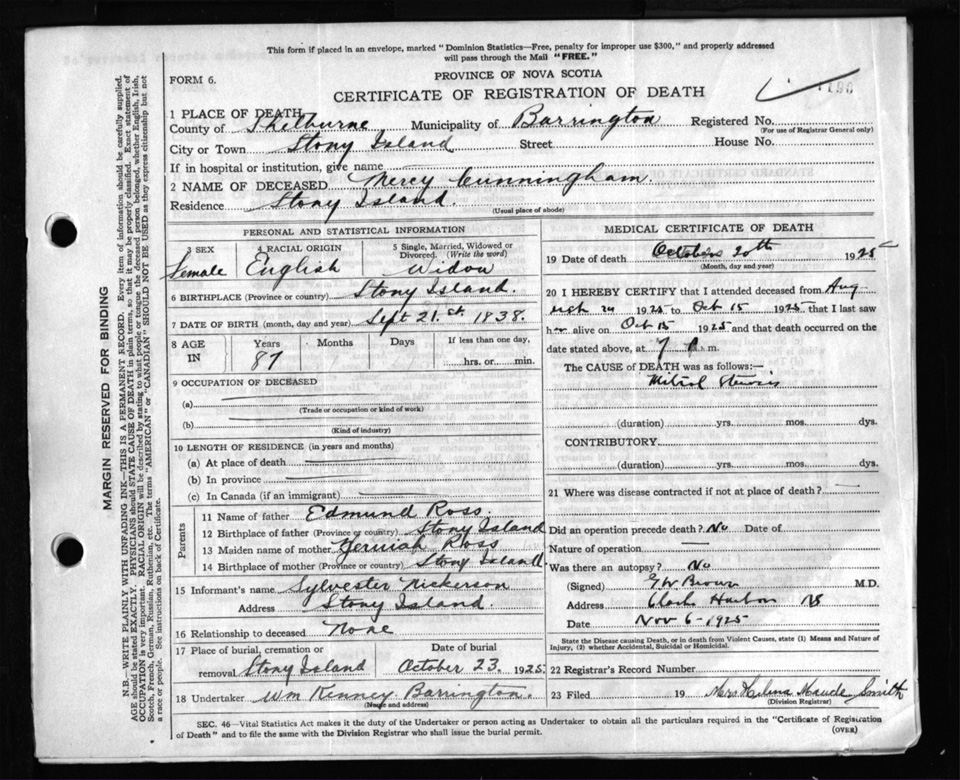 This form if placed in an envelope, marked "Dominion Statistics—Free, penalty for improper use $300," and properly addressed
will pass through the Mail "FREE."
FORM 6.
PROVINCE OF NOVA SCOTIA
CERTIFICATE OF REGISTRATION OF DEATH
1 PLACE OF DEATH
County of Shelburne Municipality of Barrington Registered No.
(For use of Registrar General only)
City or Town Stony Island Street House No.
If in hospital or institution, give name
2 NAME OF DECEASED Mercy Cunningham.
Residence Stony Island.
(Usual place of abode)
PERSONAL AND STATISTICAL INFORMATION
3 SEX 4 RACIAL ORIGIN 5 Single, Married, Widowed or
Divorced. (Write the word)
Female English Widow
6 BIRTHPLACE (Province or country) Stony Island.
7 DATE OF BIRTH (month, day and year) Sept 21.st 1838.
8 AGE Years Months Days If less than one day,
IN 87 hrs. or min.
9 OCCUPATION OF DECEASED
(a)
(Trade or occupation or kind of work)
(b)
(Kind of industry)
10 LENGTH OF RESIDENCE (in years and months)
(a) At place of death
(b) In province
(c) In Canada (if an immigrant)
Parents
11 Name of father Edmund Ross.
12 Birthplace of father (Province or country) Stony Island
13 Maiden name of mother Ross
14 Birthplace of mother (Province or country) Stony Island
15 Informant's name Sylvester Nickerson
Address Stony Island.
16 Relationship to deceased None
17 Place of burial, cremation or Date of burial
removal Stony Island October 23, 1925
18 Undertaker Wm Kenney Barrington.
(Name and address)
MEDICAL CERTIFICATE OF DEATH
19 Date of death October 20th 1925
(Month, day and year)
20 I HEREBY CERTIFY that I attended deceased from Aug
1925 to Oct 15 1925 that I last saw
her alive on Oct 15 1925 and that death occurred on
date stated above, at 7 m.
The CAUSE of DEATH was as follows:—
Mitral Stenosis
(duration) yrs. mos. dys.
CONTRIBUTORY
(duration) yrs. mos. dys.
21 Where was disease contracted if not at place of death? —
Did an operation precede death? No Date of
Nature of operation —
Was there an autopsy? No
(Signed) Brown M.D.
Address Clarks Harbour NS
Date Nov 6 - 1925
State the Disease causing Death, or in death from Violent Causes, state (1) Means and Nature of
Injury, (2) whether Accidental, Suicidal or Homicidal.
22 Registrar's Record Number
23 Filed 19 Maude Smith
(Division Registrar)
SEC. 46—Vital Statistics Act makes it the duty of the Undertaker or person acting as Undertaker to obtain all the particulars required in the "Certificate of Registration
of Death" and to file the same with the Division Registrar who shall issue the burial permit.
(OVER)
MARGIN RESERVED FOR BINDING
N.B.—WRITE PLAINLY WITH UNFADING INK—THIS IS A PERMANENT RECORD. Every item of information should be carefully supplied.
AGE should be stated EXACTLY. PHYSICIANS should STATE CAUSE OF DEATH in plain terms, so that it may be properly classified. Exact statement of
OCCUPATION is very important. RACIAL ORIGIN will be described by stating to what people or tongue the deceased person belonged, whether English, Irish,
Scotch, French, German, Russian, Ruthenian, etc. The terms "AMERICAN" or "CANADIAN" SHOULD NOT BE USED as they express citizenship but not
a race or people. See instructions on back of Certificate.